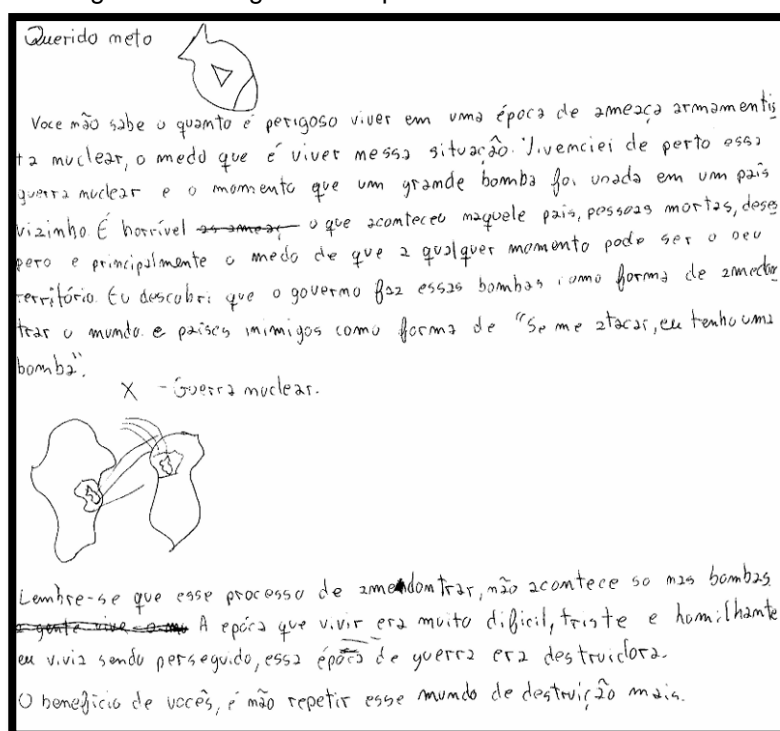 Querido meto
Voce mão sabe o quamto é perigoso viver em uma época de ameaça armamentis
ta muclear, o medo que é viver messa situação. Vivenciei de perto essa
guerra muclear e o momento que um grande bomba foi usada em um país
vizinho. É horrível o que aconteceu maquele país, pessoas mortas, deses
pero e principalmente o medo de que a qualquer momento pode ser o seu
território. Eu descobri que o govermo faz essas bombas como forma de amedon
trar o mundo e países inimigos como forma de "Se me atacar, eu tenho uma
bomba".
X - Guerra muclear.
Lembre-se que esse processo de amedontrar, mão acontece so mas bombas
A epóca que vivir era muito dificil, triste e homilhamte
eu vivia sendo perseguido, essa época de guerra era destruidora.
O beneficio de vocês, é mão repetir esse mumdo de destruição mais.